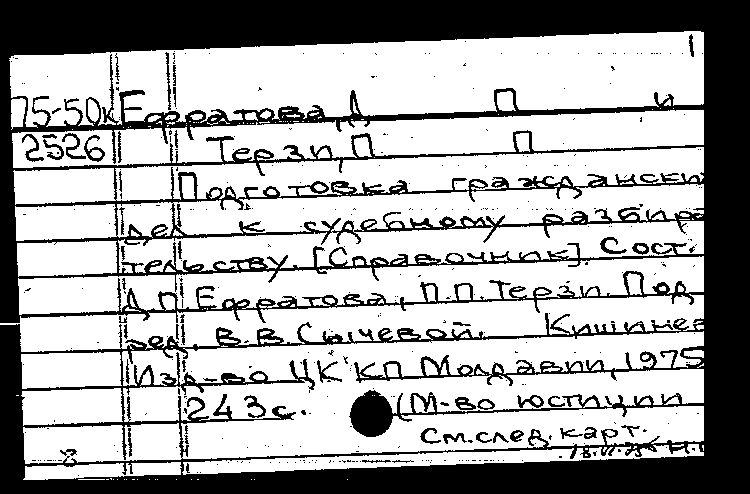 1
75-50к Ефратова, Д П и
2526 Терзи, П П
Подготовка граждански
дел к судебному разбира
тельству. [Справочник]. Сост.
Д.П. Ефратова, П.П. Терзи. Под
ред. В.В. Сычевой. Кишинев
Изд-во ЦК КП Молдавии, 1975
243с. (М-во юстиции
См. след. карт.
8